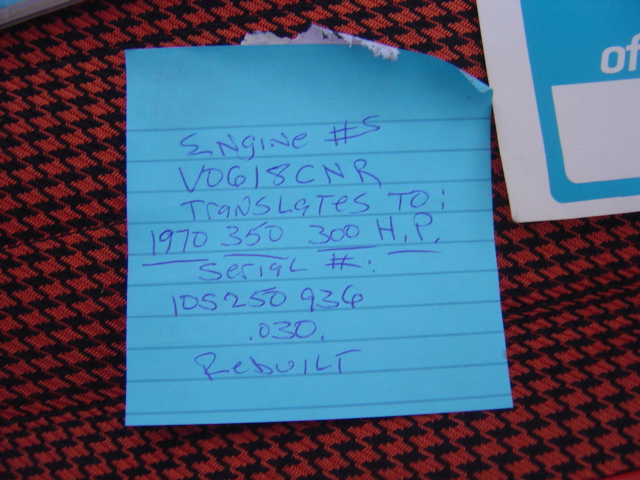 Engine #S
V0618CNR
TRANSLATES TO:
1970 350 300 H.P.
Serial #:
105250936
.030.
Rebuilt
of